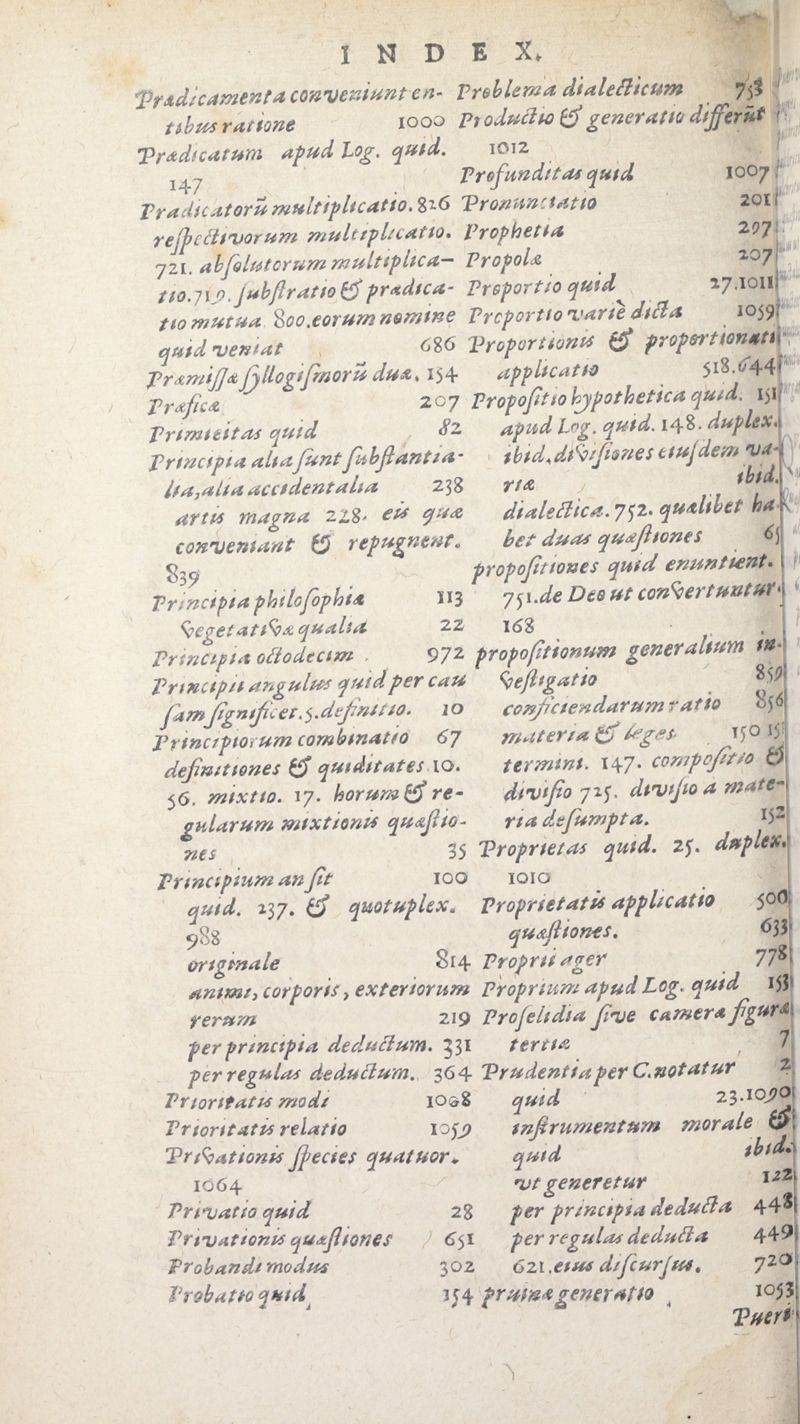 INDEX.
Prædicamenta conveniunt en-
tibus ratione 1000
Prædicatum apud Log. quid.
147
Prædicatorũ multiplicatio. 826
respectivorum multiplicatio.
721. absolutorum multiplica-
tio. 719. substratio & prædica-
tio mutua 800. eorum nomine
quid veniat 686
Præmissæ syllogismorũ duæ. 154
Præficæ 207
Primieitas quid 82
Principia alia sunt substantia-
lia, alia accidentalia 238
artis magna 228. eis quæ
conveniant & repugnent.
839
Principia philosophiæ 113
vegetativæ qualia 22
Principia octodecim 972
Principii angulus quid per cau
sam significet. 5. definitio. 10
Principiorum combinatio 67
definitiones & quiditates 10.
56. mixtio. 17. horum & re-
gularum mixtionis quæstio-
nes 35
Principium an sit 100
quid. 237. & quotuplex.
988
originale 814
animi, corporis, exteriorum
rerum 219
per principia deductum. 331
per regulas deductum. 364
Prioritatis modi 1008
Prioritatis relatio 1059
Privationis species quatuor.
1064
Privatio quid 28
Privationis quæstiones 651
Probandi modus 302
Probatio quid 354
Problema dialecticum 758
Productio & generatio differũt
1012
Profunditas quid 1007
Pronunctatio 201
Prophetia 297
Propolæ 207
Proportio quid 27.1011
Proportio variè dicta 1059
Proportionis & proportionati
applicatio 518.644
Propositio hypothetica quid. 151
apud Log. quid. 148. duplex.
ibid. divisiones eiusdem va-
riæ ibid.
dialectica. 752. quælibet ha-
bet duas quæstiones 65
propositiones quid enuntient.
751. de Deo ut convertuntur.
168
propositionum generalium in-
vestigatio 859
conficiendarum ratio 856
materia & leges 150 15
termini. 147. compositio &
divisio 725. divisio a mate-
ria desumpta. 152
Proprietas quid. 25. duplex.
1010
Proprietatis applicatio 500
quæstiones. 633
Proprii ager 778
Proprium apud Log. quid 153
Proselidia sive camera figura
tertia 7
Prudentia per C. notatur 2
quid 23.1090
instrumentum morale &
quid ibid.
vt generetur 122
per principia deducta 448
per regulas deducta 449
621. eius discursus. 720
pruinæ generatio 1053
Pueri